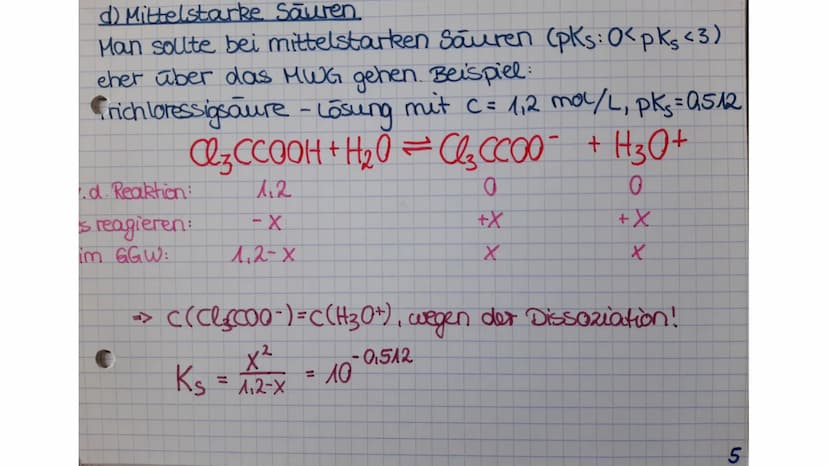 d) Mittelstarke Säuren
Man sollte bei mittelstarken Säuren (pKs: 0<pKs<3)
eher über das MWG gehen. Beispiel:
Trichloressigsäure - Lösung mit c = 1,2 mol/L, pKs=0,512
Cl₃CCOOH + H₂O ⇌ Cl₃CCOO⁻ + H₃O+
.d. Reaktion: 1,2 0 0
s reagieren: -x +x +x
im GGW: 1,2-x x x
=> c(Cl₃COO⁻)=c(H₃O+), wegen der Dissoziation!
Ks = x²/1,2-x = 10^-0,512
5